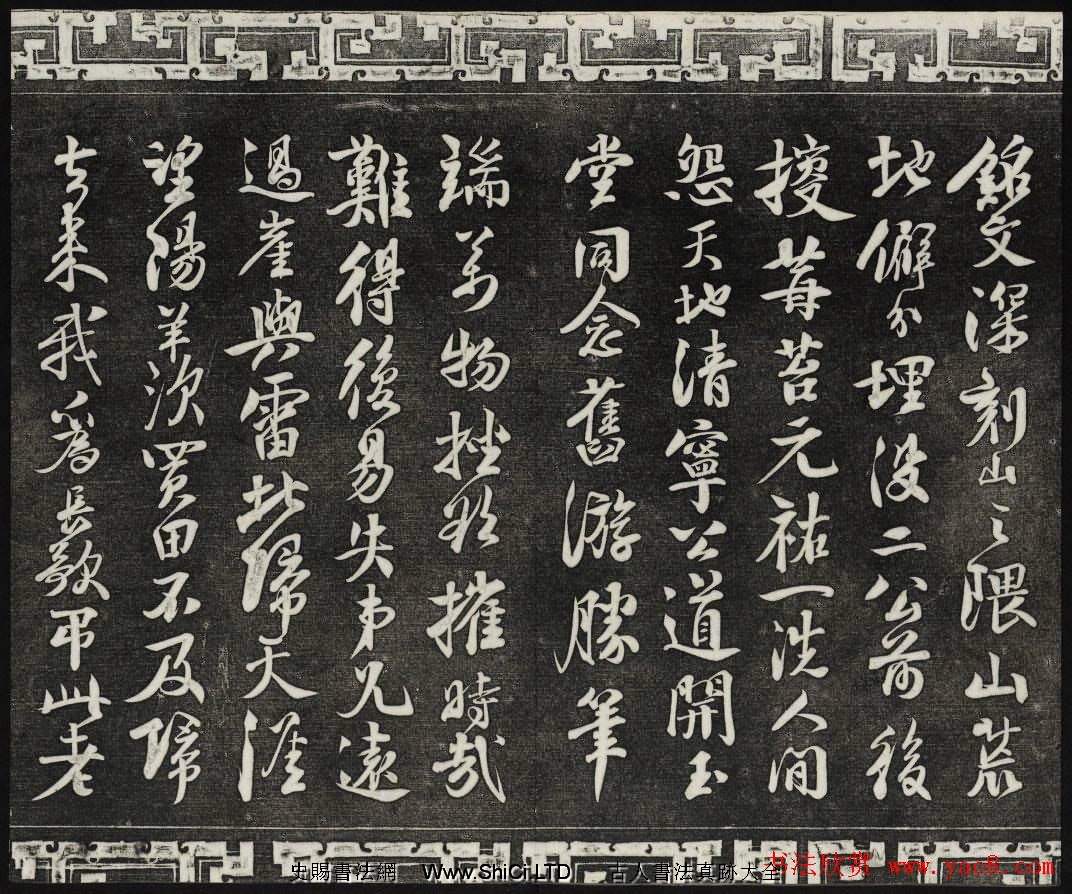 銘文深刻山之隈山荒
地僻分埋没二公前後
莓苔元祐一洗人間
怨天地清寧公道開玉
堂同念舊游勝筆
端萬物挫欲摧時哉
難得復易失弟兄遠
過崖與雷北歸天涯
望陽羨買田不及歸
去來我為長歌弔此老
史賜書法網 Www.ShiCi.LTD 古人書法真跡大全
书法欣赏 www.yac8.com